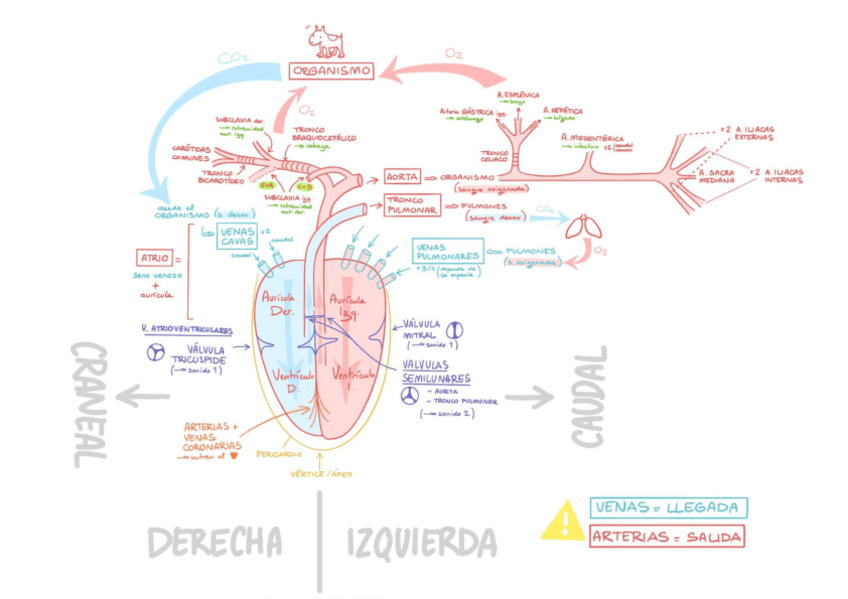 CO₂
O₂
ORGANISMO
O₂
A. ESPLÉNICA
→ bazo
Arteria GÁSTRICA izq.
→ estómago
A. HEPÁTICA
→ hígado
SUBCLAVIA der.
→ extremidad
ant. izq.
TRONCO
BRAQUIOCEFÁLICO
→ cabeza
CARÓTIDAS
COMUNES
TRONCO
BICAROTÍDEO
SUBCLAVIA izq.
→ extremidad
ant. der.
TRONCO
CELIACO
A. MESENTÉRICA
→ intestino x2
craneal
caudal
x2 A. ILIACAS
EXTERNAS
A. SACRA
MEDIANA
x2 A. ILIACAS
INTERNAS
AORTA
ORGANISMO
(sangre oxigenada)
TRONCO
PULMONAR
PULMONES
(sangre desox)
CO₂
O₂
desde el
ORGANISMO (s. desox)
VENAS
CAVAS
x2
craneal
caudal
VENAS
PULMONARES
PULMONES
(s. oxigenada)
x3/4 (depende de
la especie)
ATRIO
seno venoso
+
aurícula
Aurícula
Der.
Aurícula
Izq.
V. ATRIOVENTRICULARES
VÁLVULA
TRICUSPIDE
(→ sonido 1)
VÁLVULA
MITRAL
(→ sonido 1)
VALVULAS
SEMILUNARES
- AORTA
- TRONCO PULMONAR
(→ sonido 2)
Ventrículo
D.
Ventrículo
I.
ARTERIAS +
VENAS
CORONARIAS
→ nutren el ♥
PERICARDIO
VÉRTICE / ÁPEX
CRANEAL
CAUDAL
DERECHA
IZQUIERDA
VENAS = LLEGADA
ARTERIAS = SALIDA